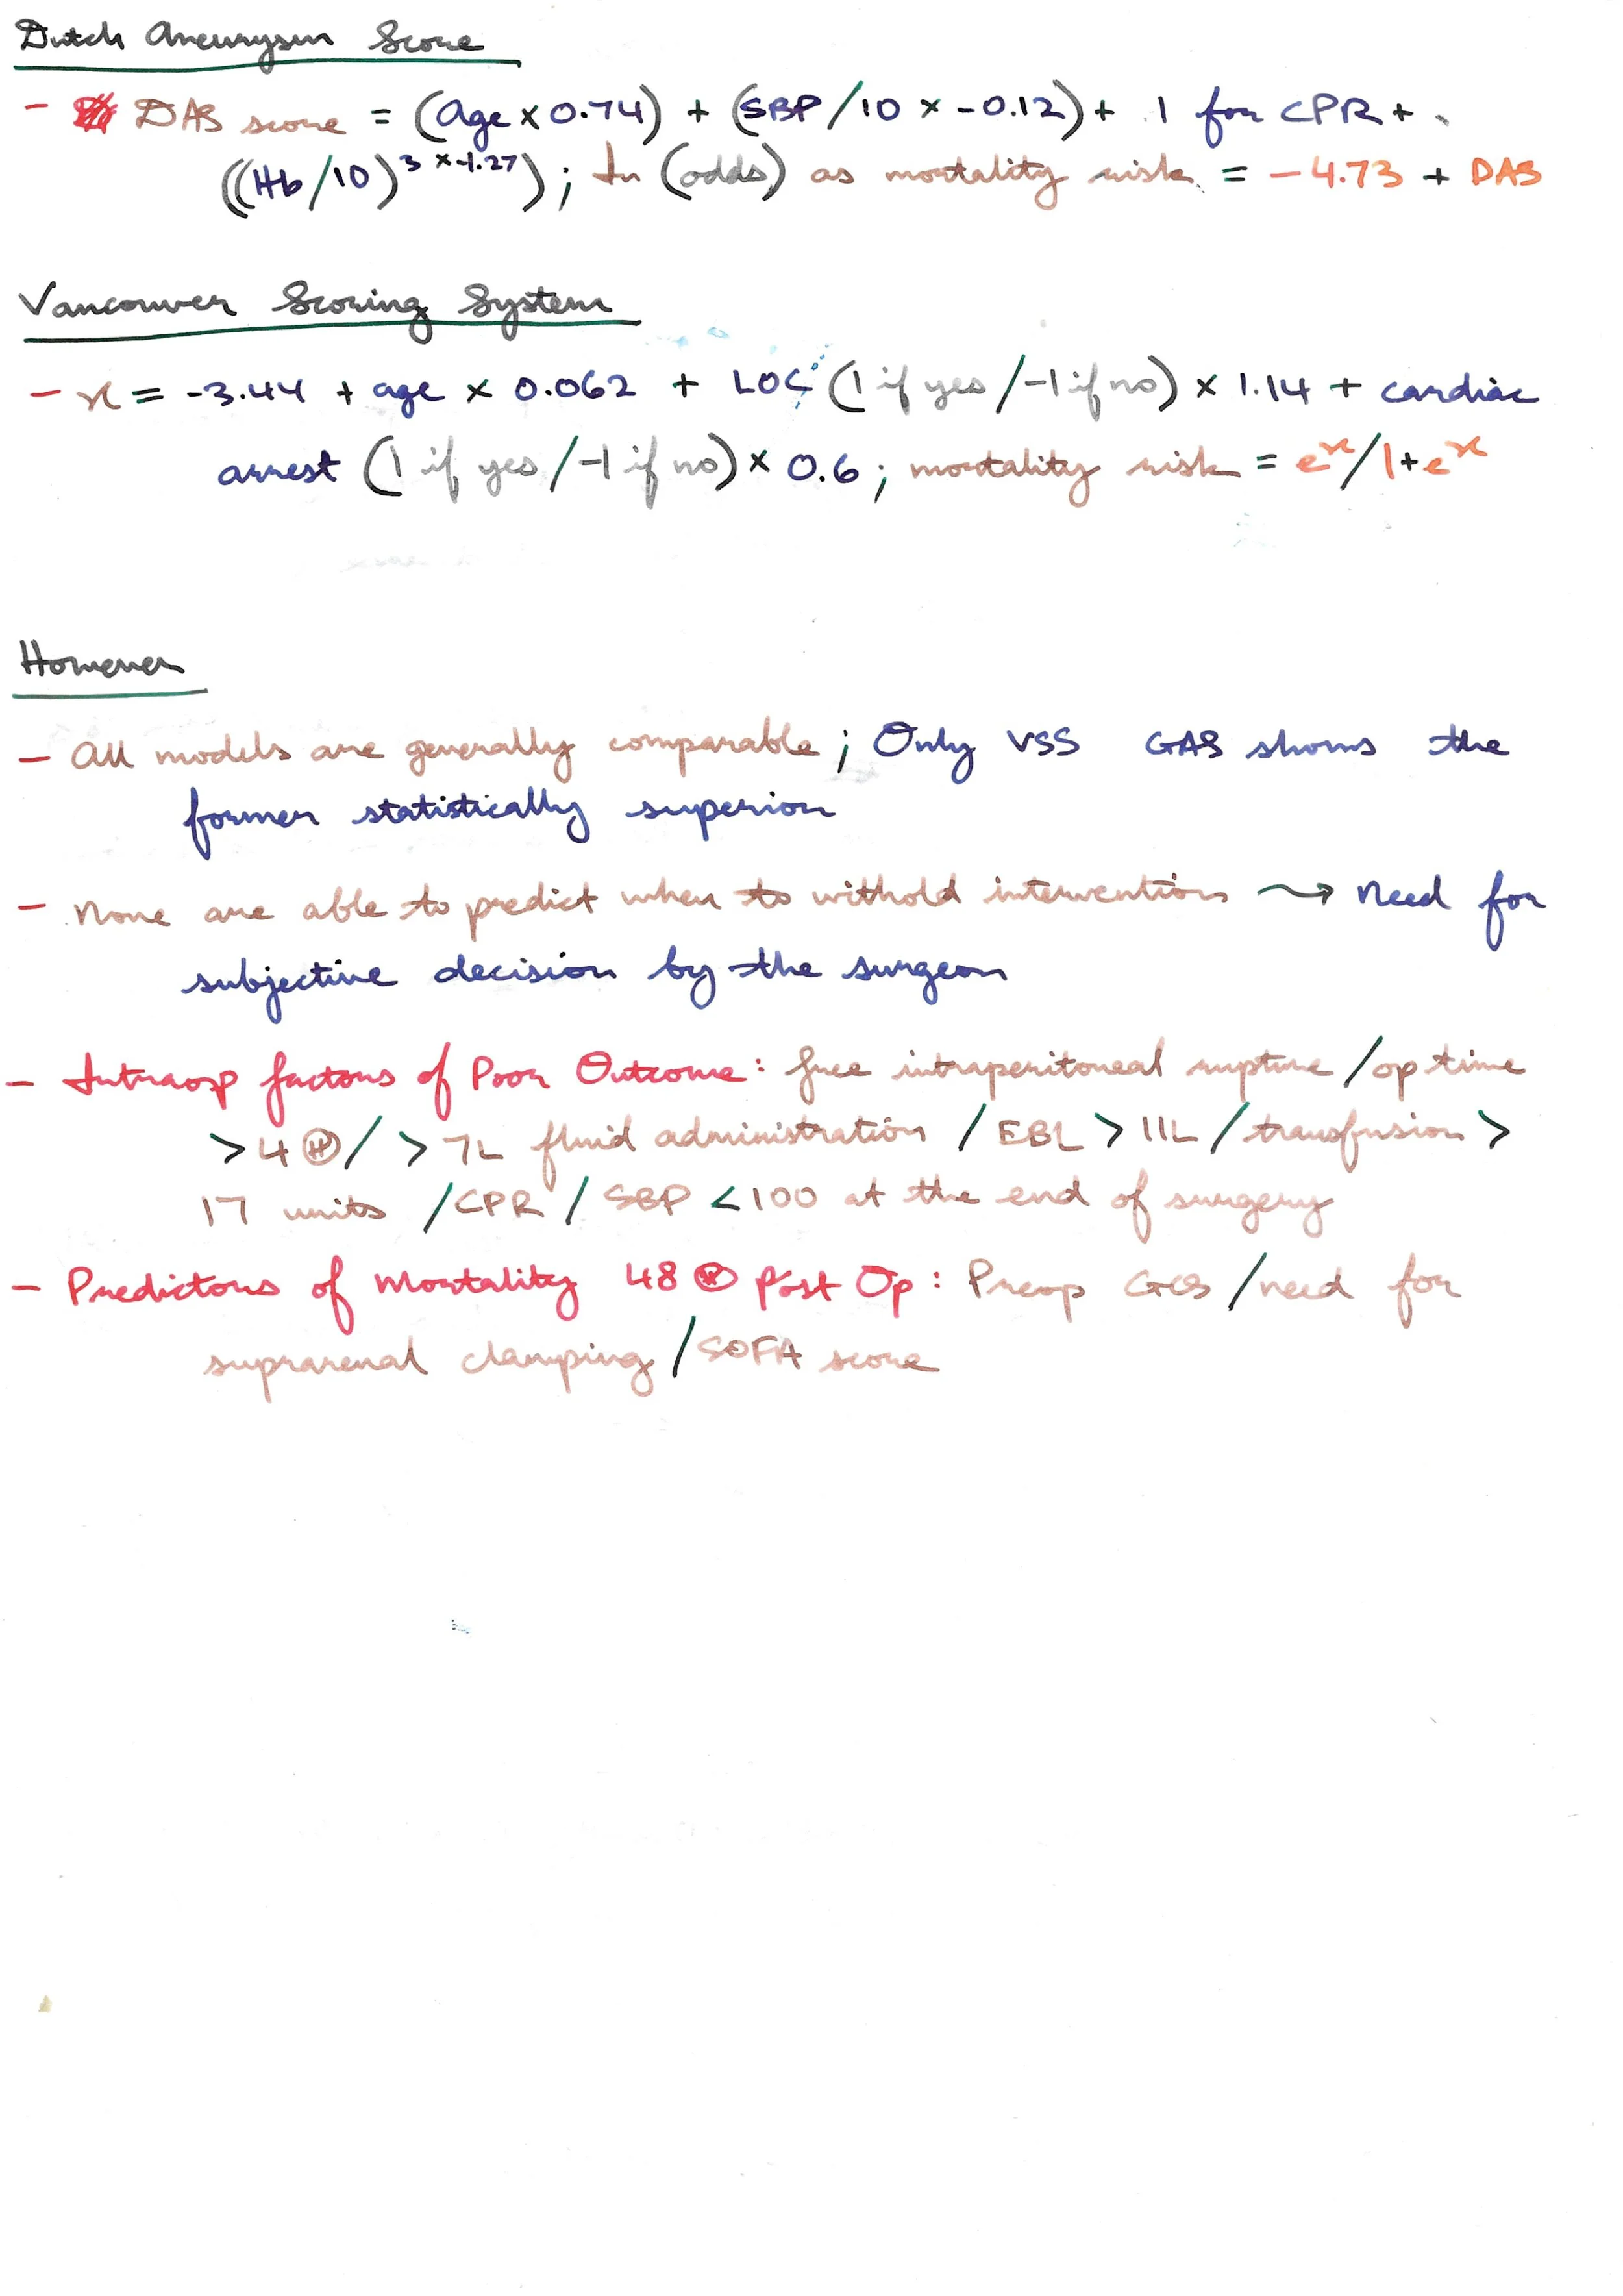 Dutch Aneurysm Score
- DAS score = (Age x 0.74) + (SBP/10 x -0.12) + 1 for CPR +
((Hb/10)³ x -1.27); ln (odds) as mortality risk = -4.73 + DAS
Vancouver Scoring System
- x = -3.44 + age x 0.062 + LOC (1 if yes/-1 if no) x 1.14 + cardiac
arrest (1 if yes/-1 if no) x 0.6; mortality risk = eˣ/1+eˣ
However
- All models are generally comparable; Only VSS GAS shows the
former statistically superior
- None are able to predict when to withold intervention → Need for
subjective decision by the surgeon
- Intraop factors of Poor Outcome: free intraperitoneal rupture/op time
>4 Ⓗ/ >7L fluid administration / EBL > 11L/transfusion >
17 units /CPR / SBP <100 at the end of surgery
- Predictors of Mortality 48 Ⓗ post Op: Preop GCS/need for
suprarenal clamping/SOFA score